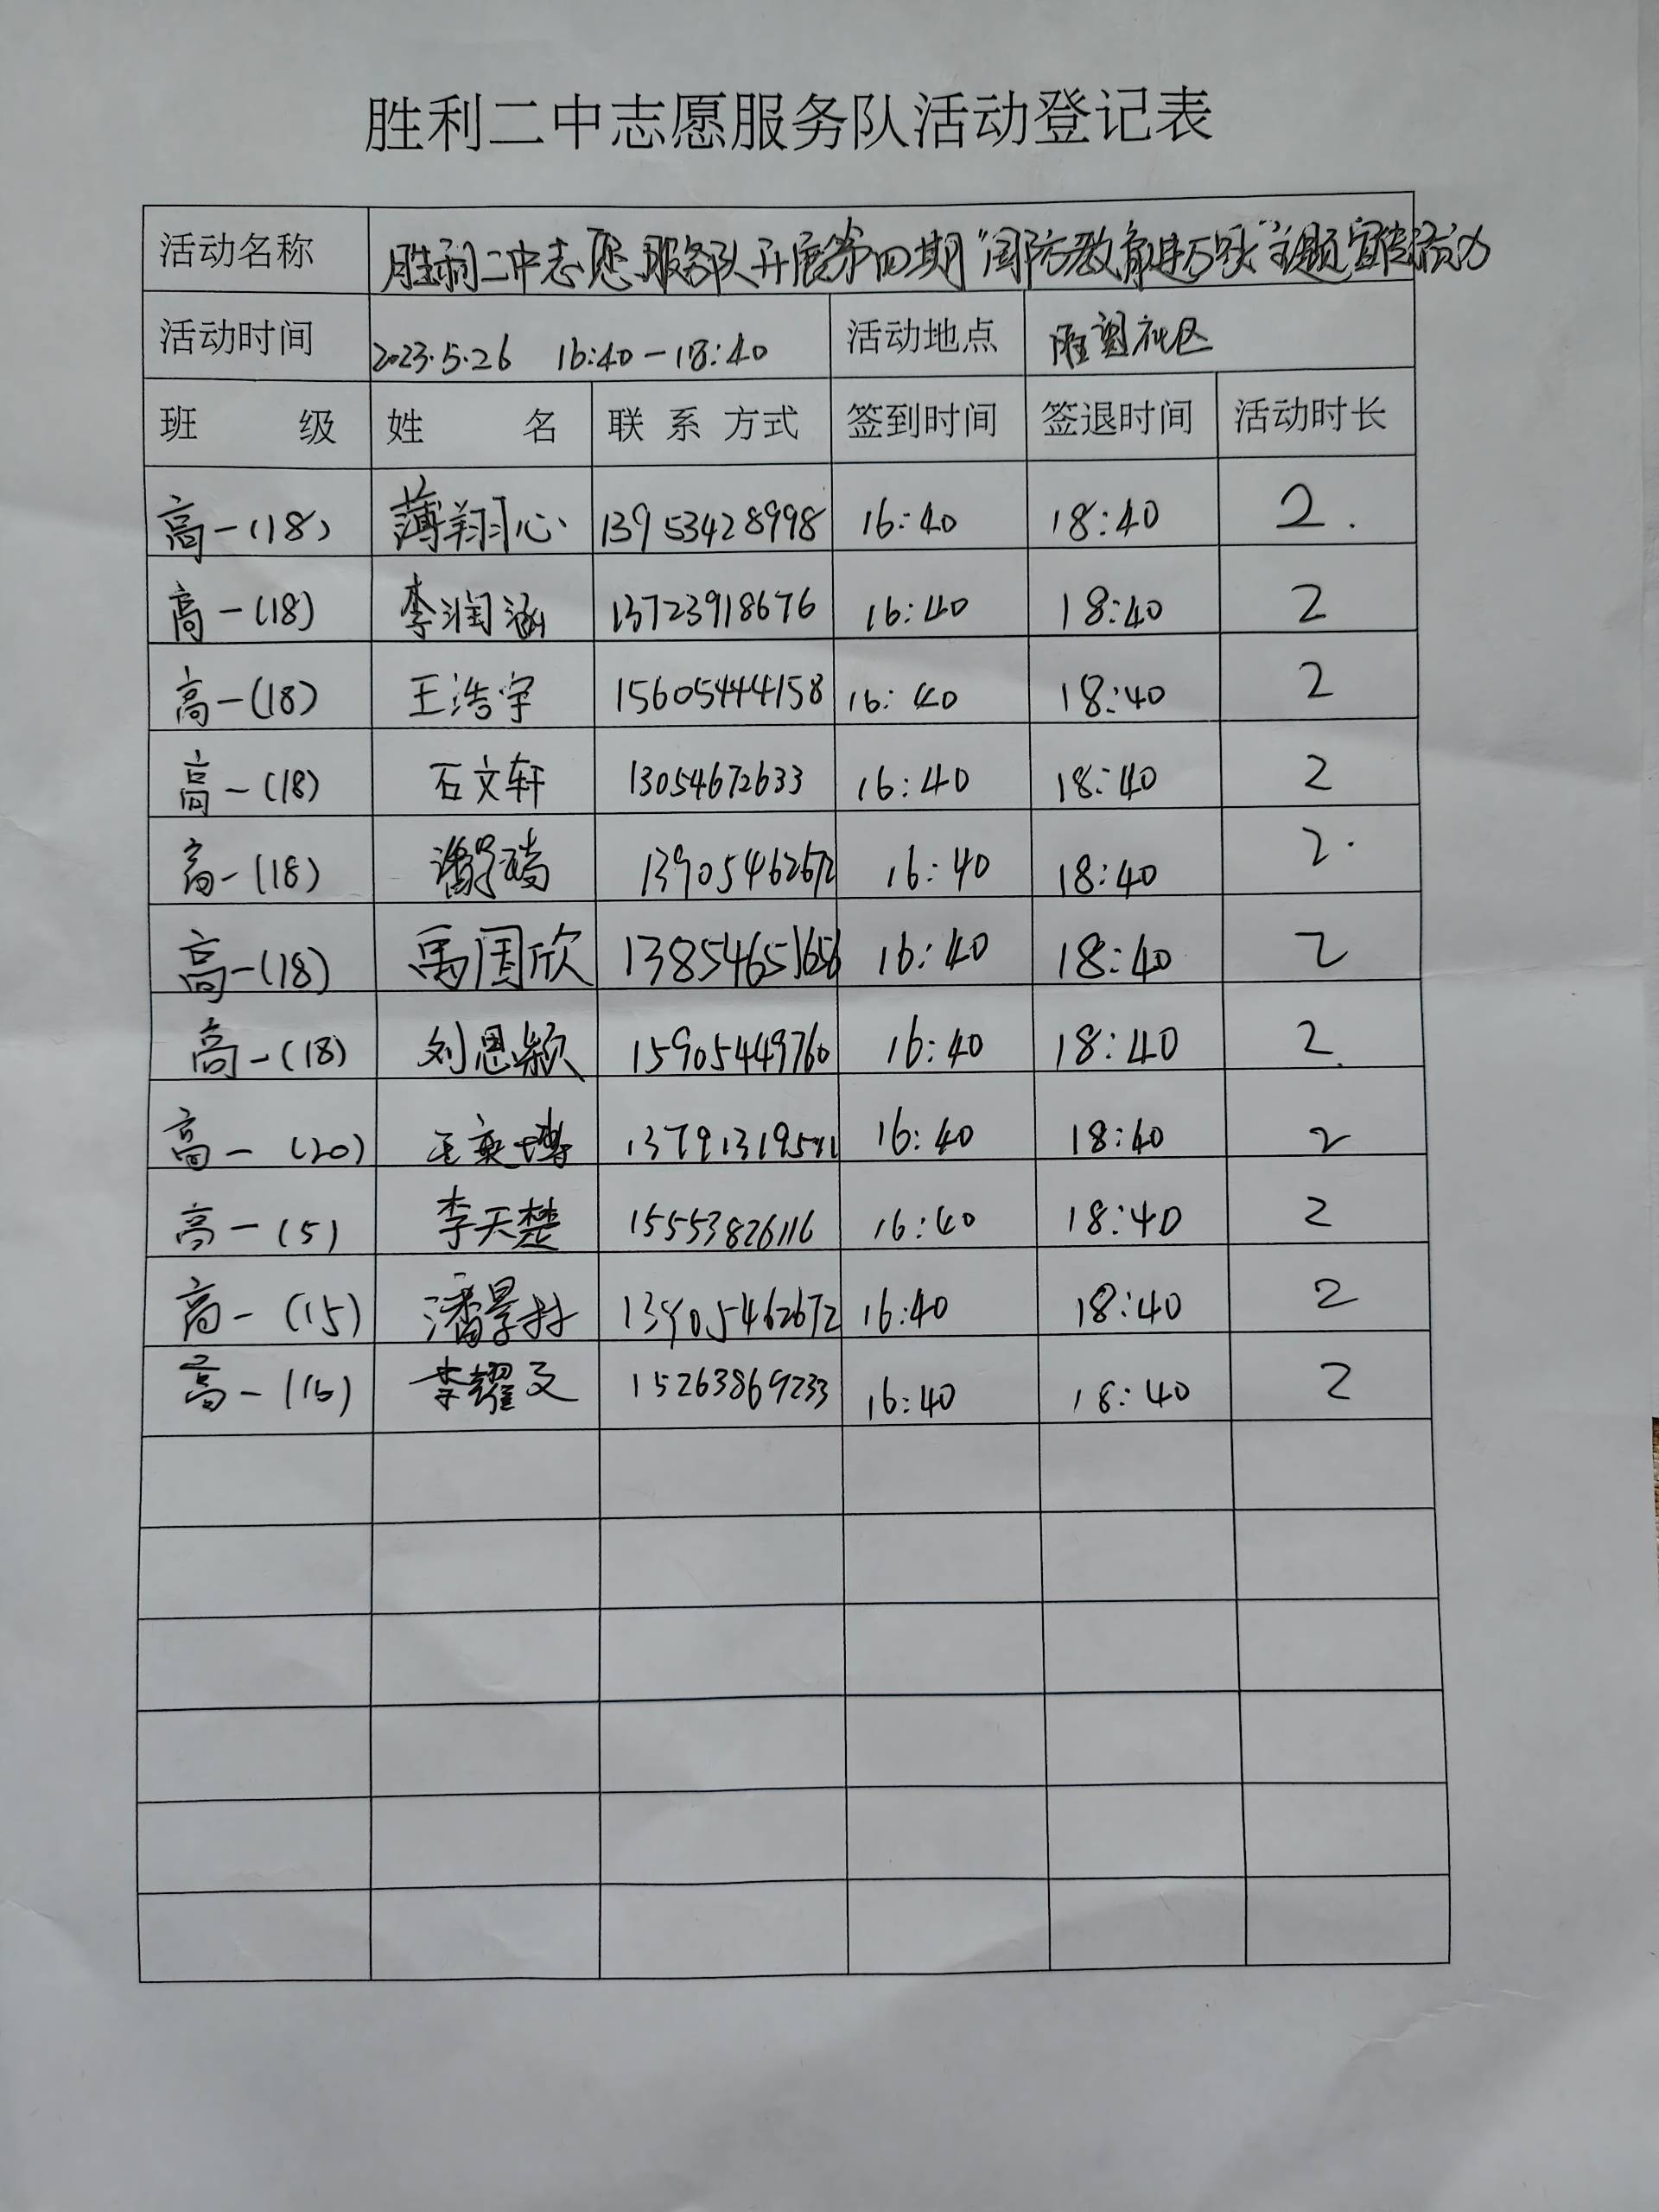 胜利二中志愿服务队活动登记表
活动名称 胜利二中志愿服务队开展第四期“国防教育进万家”主题宣传活动
活动时间 2023.5.26 16:40-18:40 活动地点 社区
班 级 姓 名 联 系 方式 签到时间 签退时间 活动时长
高一(18) 薄翔心 13953428998 16:40 18:40 2.
高一(18) 李润涵 13723918676 16:40 18:40 2
高一(18) 王浩宇 15605444158 16:40 18:40 2
高一(18) 石文轩 13054672633 16:40 18:40 2
高一(18) 13905462672 16:40 18:40 2.
高一(18) 禹国欣 13854651656 16:40 18:40 2
高一(18) 刘恩颖 15905449760 16:40 18:40 2.
高一(20) 王奕博 16:40 18:40 2
高一(5) 李天楚 15553826116 16:40 18:40 2
高一(15) 13905462672 16:40 18:40 2
高一(16) 李耀文 15263869233 16:40 18:40 2